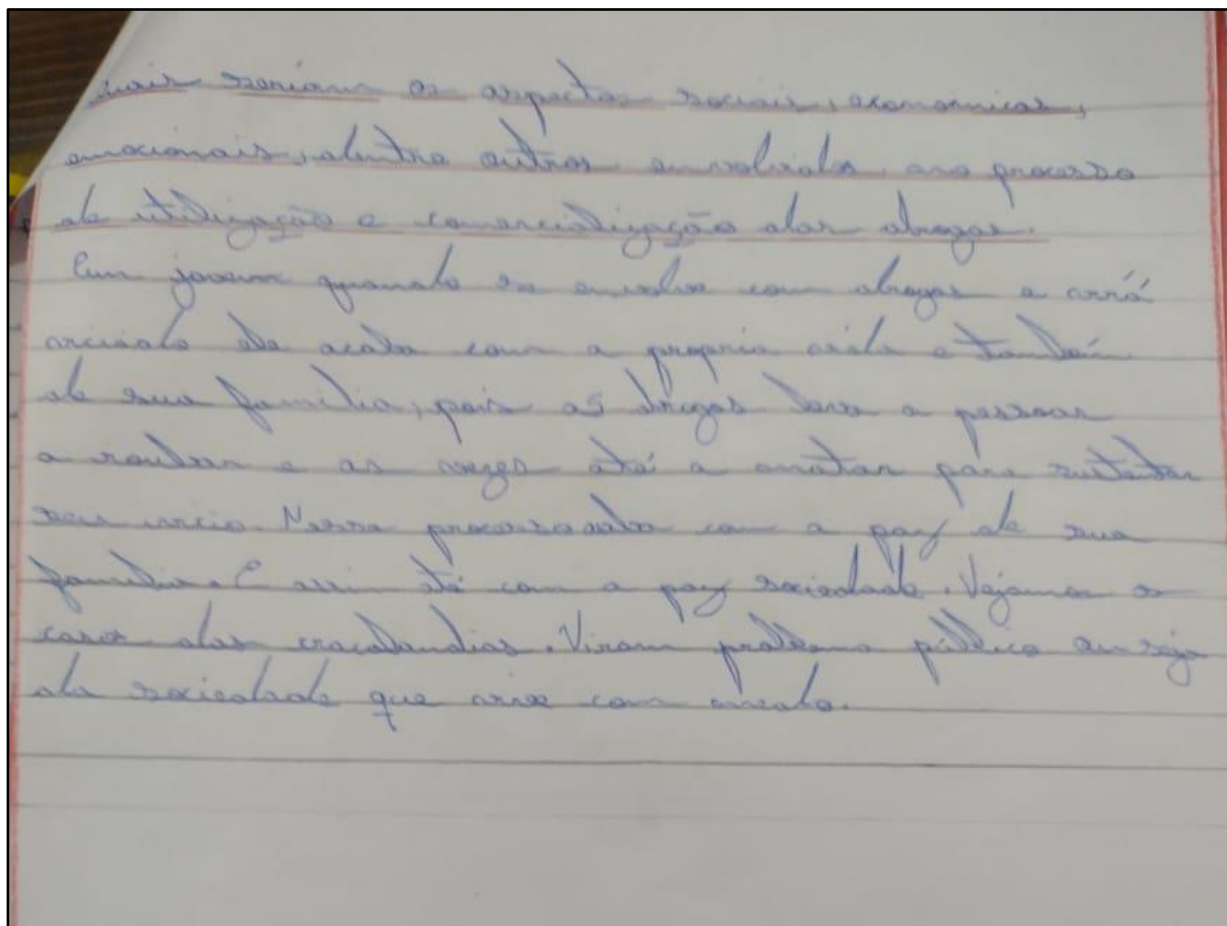 quais seriam os aspectos sociais, economicos,
emocionais, dentre outros envolvidos, no processo
de utilização e comercialização das drogas.
Um jovem quando se envolve com drogas e
viciado ele acaba com a propria vida e também
de sua familia, pois as drogas leva a pessoas
a roubar e as vezes até a matar para sustentar
seu vicio. Nesse processo acaba com a paz de sua
familia. E assim até com a paz sociedade. Vejamos os
casos das cracolandias. Viram problema público ou seja
da sociedade que vive com medo.